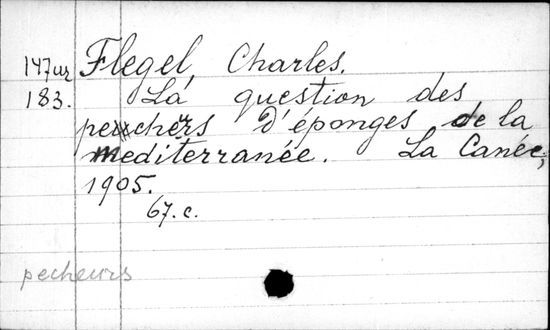 147ur Flegel, Charles.
183. La question des
pechers d'éponges de la
mediterranée. La Canée,
1905.
67. c.
pecheurs